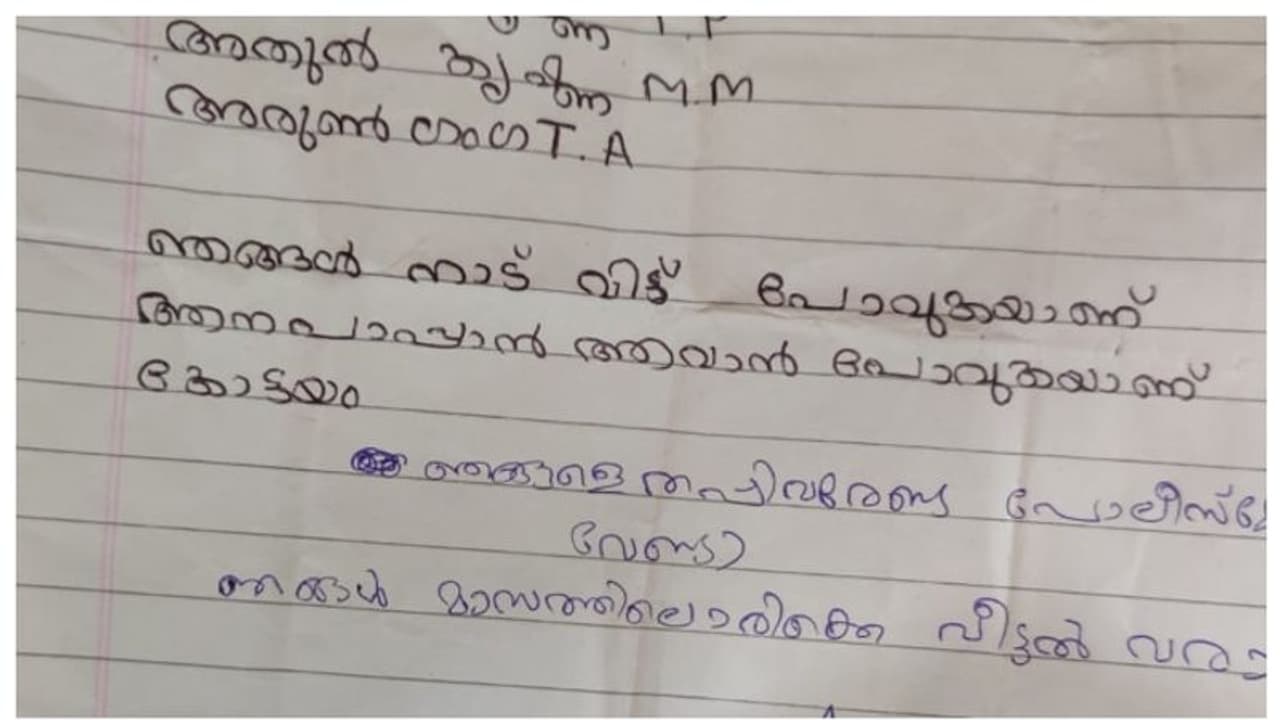 ണ T.P
അതുൽ കൃഷ്ണ M.M
അരുൺ ഗംഗ T.A
ഞങ്ങൾ നാട് വിട്ട് പോവുകയാണ്
ആനപാപ്പാൻ ആവാൻ പോവുകയാണ്
കോട്ടയം
ഞങ്ങളെ തപ്പിവരേണ്ട പോലീസ്
വേണ്ടാ
ഞങ്ങൾ മാസത്തിലൊരിക്കെ വീട്ടൽ